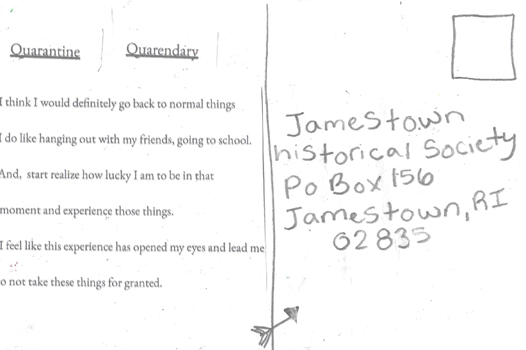 Quarantine Quarendary
I think I would definitely go back to normal things
I do like hanging out with my friends, going to school.
And, start realize how lucky I am to be in that
moment and experience those things.
I feel like this experience has opened my eyes and lead me
o not take these things for granted.
Jamestown
historical Society
Po Box 156
Jamestown, RI
02835